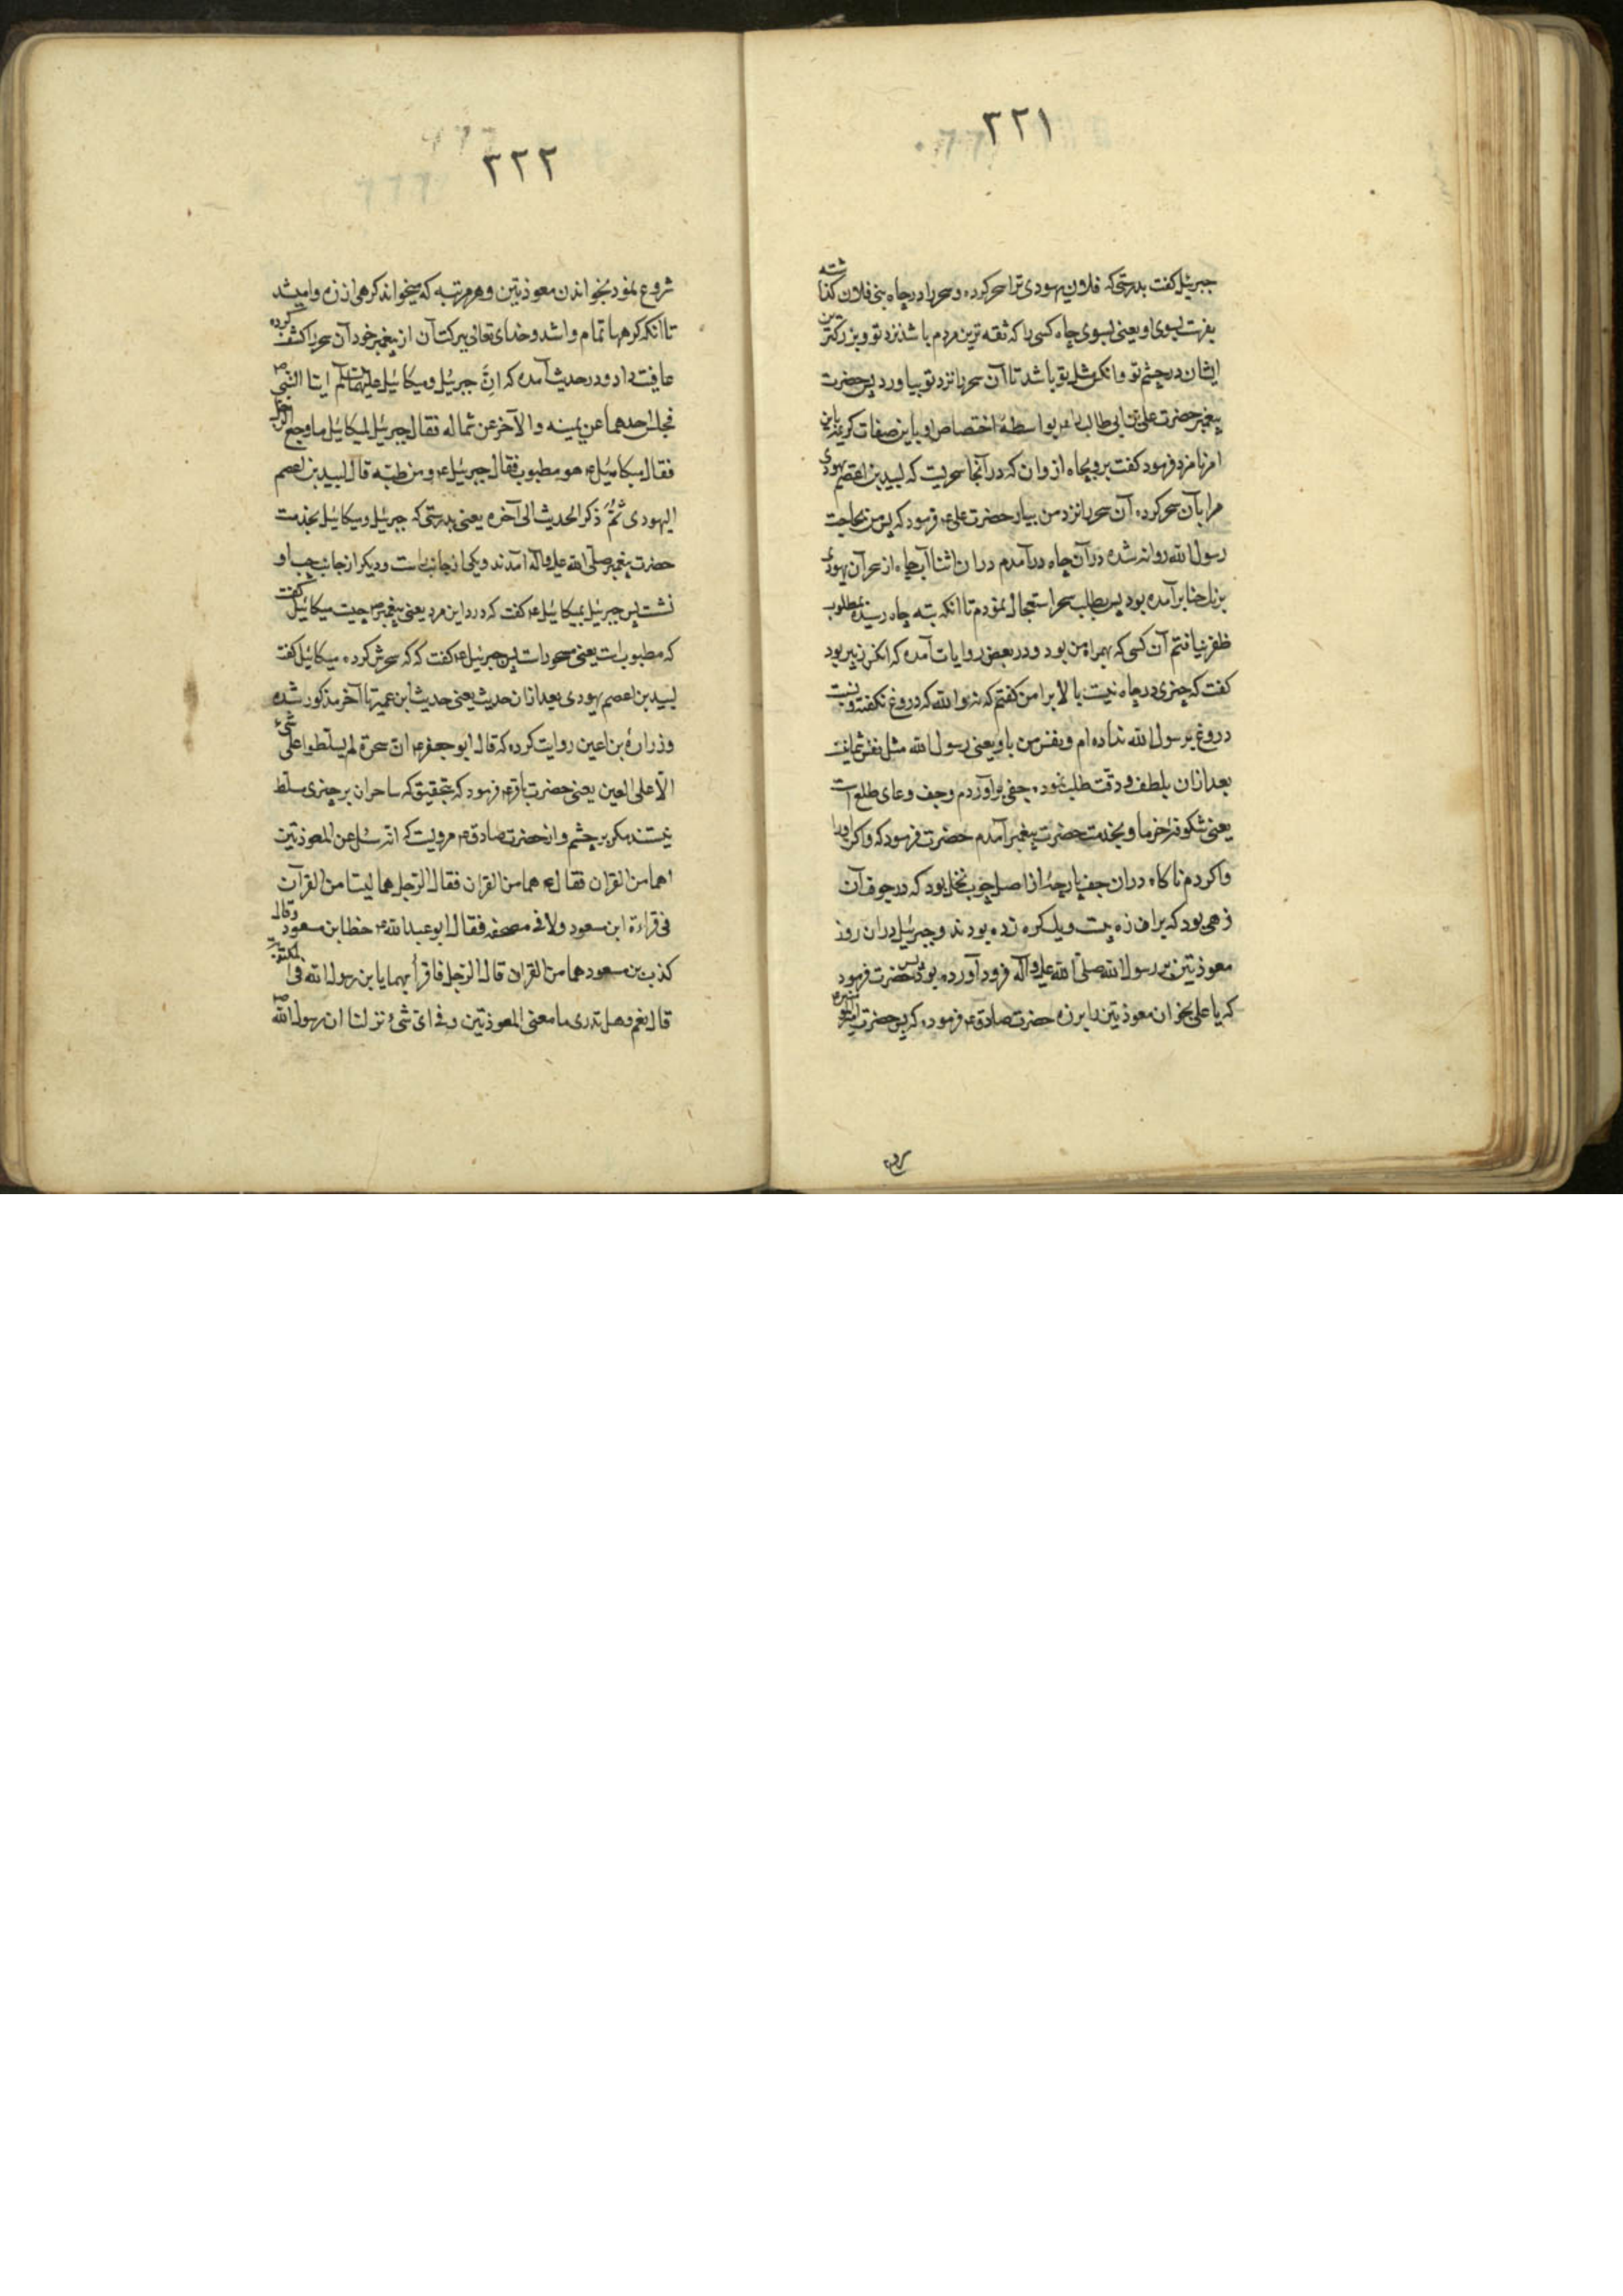 ٣٢١
جبرئیل گفت بدرستی که فلان یهودی ترا سحر کرده و سحر را در چاه بنی فلان گذاشته
بفرست بسوی او یعنی بسوی چاه کسی را که ثقه ترین مردم باشد نزد تو و بزرکترین
ایشان در چشم تو وانکس مثل تو باشد تا آن سحر را نزد تو بیاورد پس حضرت
پیغمبر حضرت علی بن ابی طالب را بواسطۀ اختصاص او باین صفات کریمه باین
امر نامزد فرمود گفت برو بچاه ازوان که در آنجا سحریست که لبید بن اعصم یهودی
مرا بآن سحر کرده آن سحر را نزد من بیار حضرت علی ع فرمود که پس من بحاجت
رسول الله روانه شده در آن چاه درآمدم دران اثنا آب چاه از سحر آن یهودی
برنك حنا برآمده بود پس بطلب سحر استعجال نمودم تا انکه بته چاه رسیده بمطلوب
ظفر نیافتم آن کسی که بهمراه من بود و در بعض روایات آمده که انکس زبیر بود
گفت که چیزی در چاه نیست بالا برا من گفتم که نه والله که دروغ نگفته و نسبت
دروغ برسول الله نداده ام و نفس من باو یعنی رسول الله مثل نفس شما نیست
بعد ازان بلطف و دقت طلب نموده جفی برآوردم وجف وعای طلع است
یعنی شکوفۀ خرما و بخدمت حضرت پیغمبر آمدم حضرت فرمود که واکن اورا
واکردم ناکاه دران جف پارچۀ از اصل چوب نخل بود که در جوف آن
زهی بود که بران زه بیست ویك کره زده بودند و جبرئیل دران روز
معوذتین بر رسول الله صلی الله علیه وآله فرود آورده بود پس حضرت فرمود
که یا علی بخوان معوذتین را برزه حضرت صادق ع فرموده که پس حضرت امیر
٣٢٢
شروع نمود بخواندن معوذتین و هر مرتبه که میخواند کرهی از زه وا میشد
تا انکه کرهها تمام وا شد و خدای تعالی ببرکت آن از پیغمبر خود آن سحر را کشف کرده
عافیت داد و در حدیث آمده که انَّ جبرئیل ومیکائیل علیهما السلم ایتا النبی ص
فجلس احدهما عن یمینه والآخر عن شماله فقال جبرئیل لمیکائیل ما وجع الرجل
فقال میکائیل ع هو مطبوب فقال جبرئیل ع ومن طبّه قال لبید بن اعصم
الیهودی ثُمَّ ذکر الحدیث الی آخره یعنی بدرستی که جبرئیل و میکائیل بخدمت
حضرت پیغمبر صلی الله علیه وآله آمدند ویکی از جانب راست و دیکر از جانب چپ او
نشست پس جبرئیل بمیکائیل ع گفت که درد این مرد یعنی پیغمبر ص چیست میکائیل گفت
که مطبوب است یعنی مسحور است پس جبرئیل ع گفت که که سحرش کرده میکائیل گفت
لبید بن اعصم یهودی بعد ازان حدیث یعنی حدیث ابن عمیر تا آخر مذکور شده
وزرارۀ بن اعین روایت کرده که قال ابو جعفر ع ان سحرة لم یسلطوا علی شیء
الا علی العین یعنی حضرت باقر ع فرمود که بتحقیق که ساحران بر چیزی مسلط
نیستند مکر بر چشم و از حضرت صادق ع مرویست که انه سئل عن المعوذتین
اهما من القران فقال ع هما من القران فقال الرجل هما لیستا من القرآن
فی قراءة ابن مسعود ولا فی مصحفه فقال ابو عبد الله ع خطا بن مسعود وقال
کذب بن مسعود هما من القران قال الرجل فاقرأ بهما یا بن رسول الله فی المکتوبة
قال نعم وهل تدری ما معنی المعوذتین وفی ای شیء نزلتا ان رسول الله ص